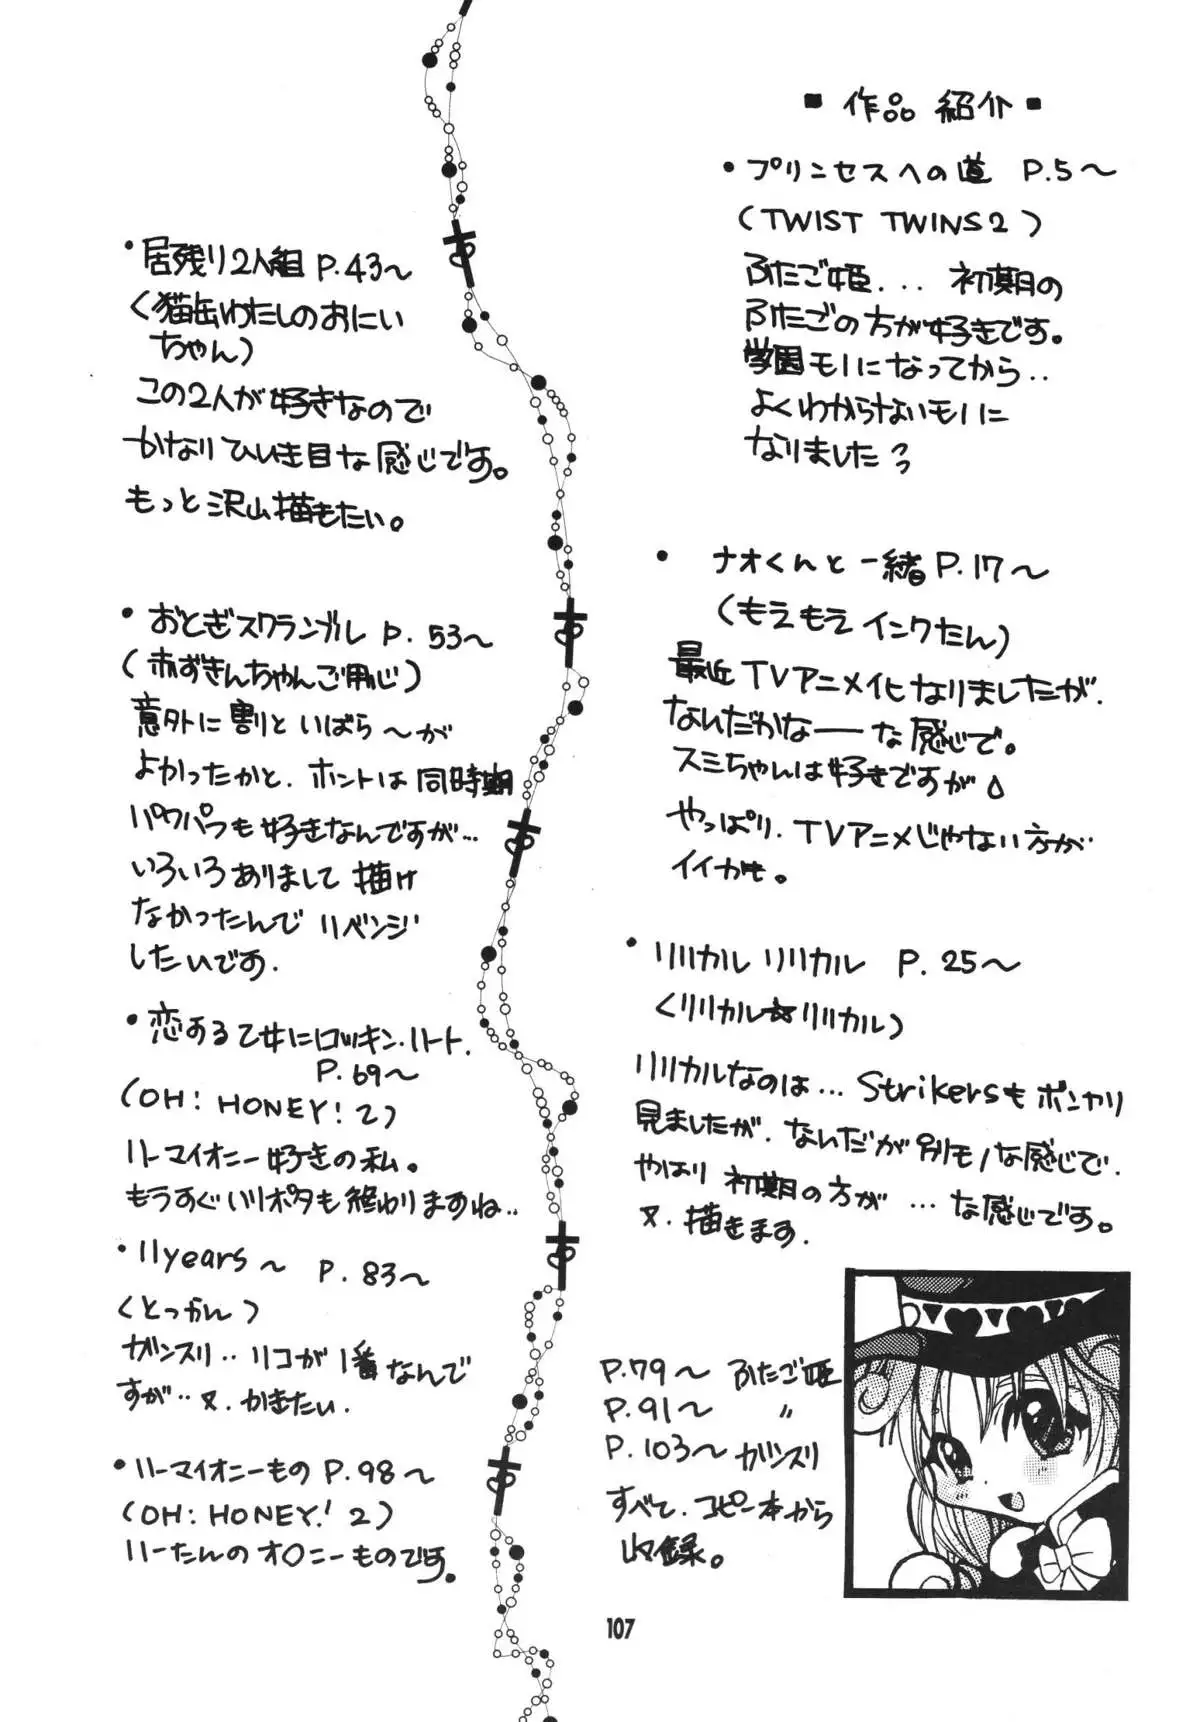 ■ 作品 紹介 ■
・プリンセスへの道 P.5〜
(TWIST TWINS2)
ふたご姫... 初期の
ふたごの方が好きです。
学園モノになってから..
よくわからないモノに
なりました
・ナオくんと一緒 P.17〜
(もえもえインクたん)
最近TVアニメ化なりましたが、
なんだかなーーな感じで。
スミちゃんは好きですが
やっぱり、TVアニメじゃない方が
イイかも。
・リリカル リリカル P.25〜
(リリカル☆リリカル)
リリカルなのは... Strikersもボンヤリ
見ましたが、なんだか別モノな感じで、
やはり 初期の方が ...な感じです。
又、描きます.
P.79〜 ふたご姫
P.91〜 〃
P.103〜 ガンスリ
すべて、コピー本から
収録。
・居残り2人組 P.43〜
(猫缶わたしのおにい
ちゃん)
この2人が好きなので
かなりひいき目な感じです。
もっと沢山描きたい。
・おとぎスクランブル P.53〜
(赤ずきんちゃんご用心)
意外に割といばら〜が
よかったかと、ホントは同時期
パワパフも好きなんですが...
いろいろありまして 描け
なかったんで リベンジ
したいです.
・恋する乙女にロッキン・ハート.
P.69〜
(OH! HONEY! 2)
ハーマイオニー好きの私。
もうすぐハリポタも終わりますね..
・11years〜 P.83〜
(とっかん)
ガンスリ.. リコが1番なんで
すが.. 又、かきたい.
・ハーマイオニーもの P.98〜
(OH! HONEY! 2)
ハーたんのオ〇ニーものです。
107